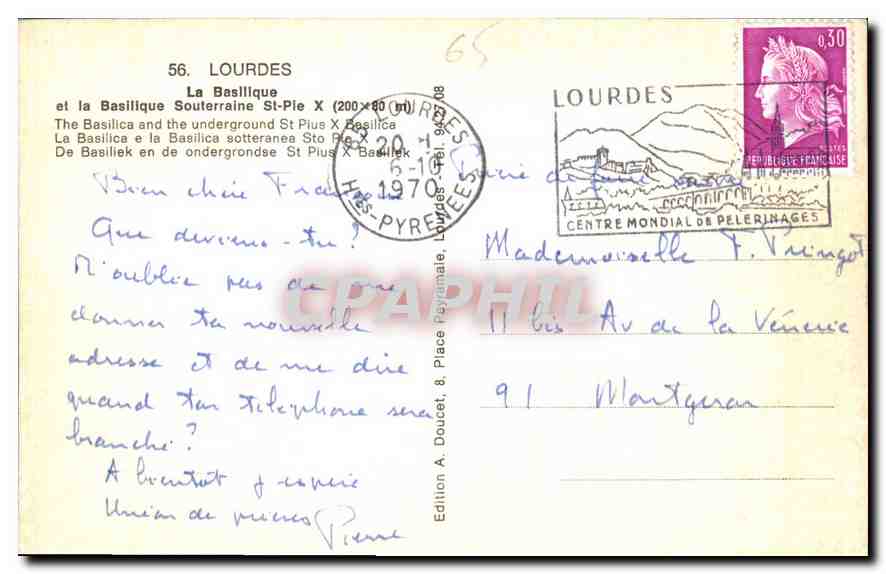 65
56. LOURDES
La Basilique
et la Basilique Souterraine St-Pie X (200x80 m)
The Basilica and the underground St Pius X Basilica
La Basilica e la Basilica sotteranea Sto Pie X
De Basiliek en de ondergrondse St Pius X Basiliek
65 LOURDES
20-1
6-10
1970
Htes-PYRENEES
LOURDES
CENTRE MONDIAL DE PELERINAGES
0,30
POSTES
REPUBLIQUE FRANCAISE
Bien chère Françoise
Que deviens-tu?
N'oublie pas de me
donner ta nouvelle
adresse et de me dire
quand ton téléphone sera
branché?
A bientôt j'espère
Union de prières
Pierre
Edition A. Doucet, 8, Place Peyramale, Lourdes - Tél. 94-27/08
Prière de faire suivre
Mademoiselle F. Pringot
11 bis Av de la Vénerie
91 Montgeron
CPAPHIL